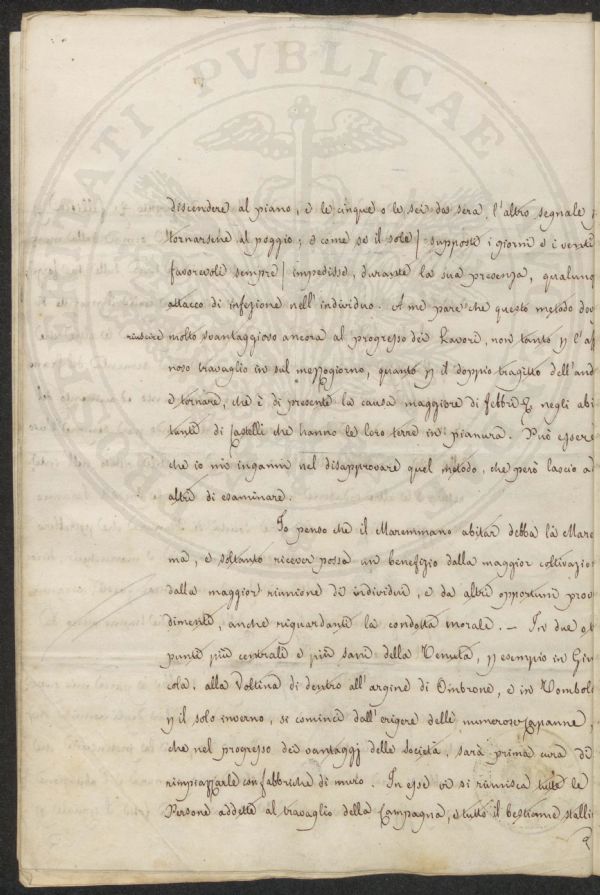 PROSPERITATI PVBLICAE
discendere al piano, e le cinque o le sei da sera, l'altro segnale
tornarsene al poggio; e come se il sole / supposti i giorni e i venti
favorevoli sempre / impedisse, durante la sua presenza, qualunq
attacco di infezione nell'individuo. A me pare che questo metodo dov
riuscire molto svantaggioso ancora al progresso dei Lavori, non tanto p l'af
noso travaglio in sul mezzogiorno, quanto p il doppio tragitto dell'and
e tornare, che è di presente la causa maggiore di febbri negli abi
tanti di Castelli che hanno le loro terre in pianura. Può essere
che io mi inganni nel disapprovare quel metodo, che però lascio ad
altri di esaminare.
Io penso che il Maremmano abitar debba la Mare
ma, e soltanto ricever possa un benefizio dalla maggior coltivazio
dalla maggior riunione di individui, e da altri opportuni prov
dimenti, anche riguardanti la condotta morale. — In due o t
punti più centrali e più sani della Tenuta, p esempio in Giun
cola, alla Voltina di dentro all'argine di Ombrone, e in Tombol
p il solo inverno, si cominci dall'erigere delle numerose Capanne,
che nel progresso dei vantaggj della Società, sarà prima cura di
rimpiazzarle con fabbriche di muro. In esse vi si riunisca tutte le
Persone addette al travaglio della Campagna, e tutto il bestiame stalli